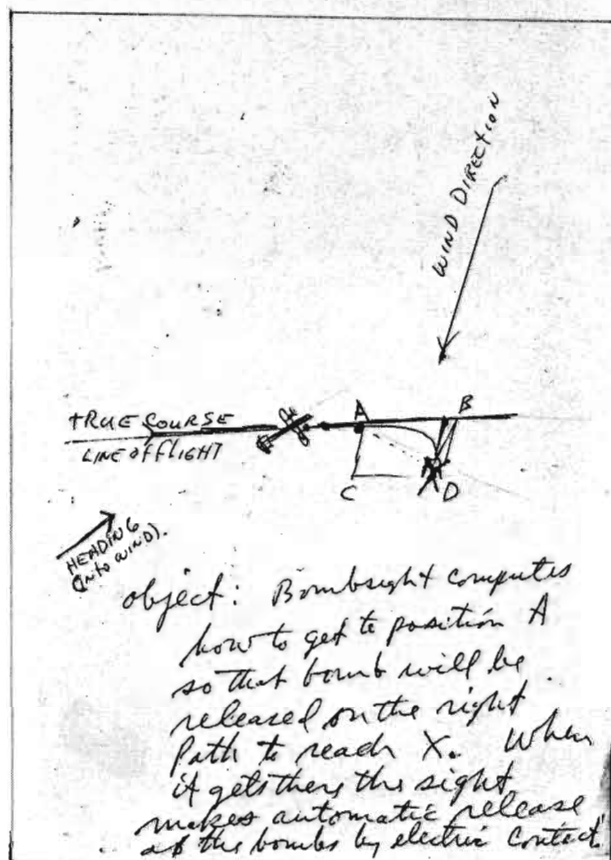 WIND DIRECTION
TRUE COURSE
LINE OF FLIGHT
A
B
C
X
D
HEADING
(INTO WIND).
object: Bombsight computes
how to get to position A
so that bomb will be
released on the right
Path to reach X. When
it gets there the sight
makes automatic release
of the bombs by electric contact.